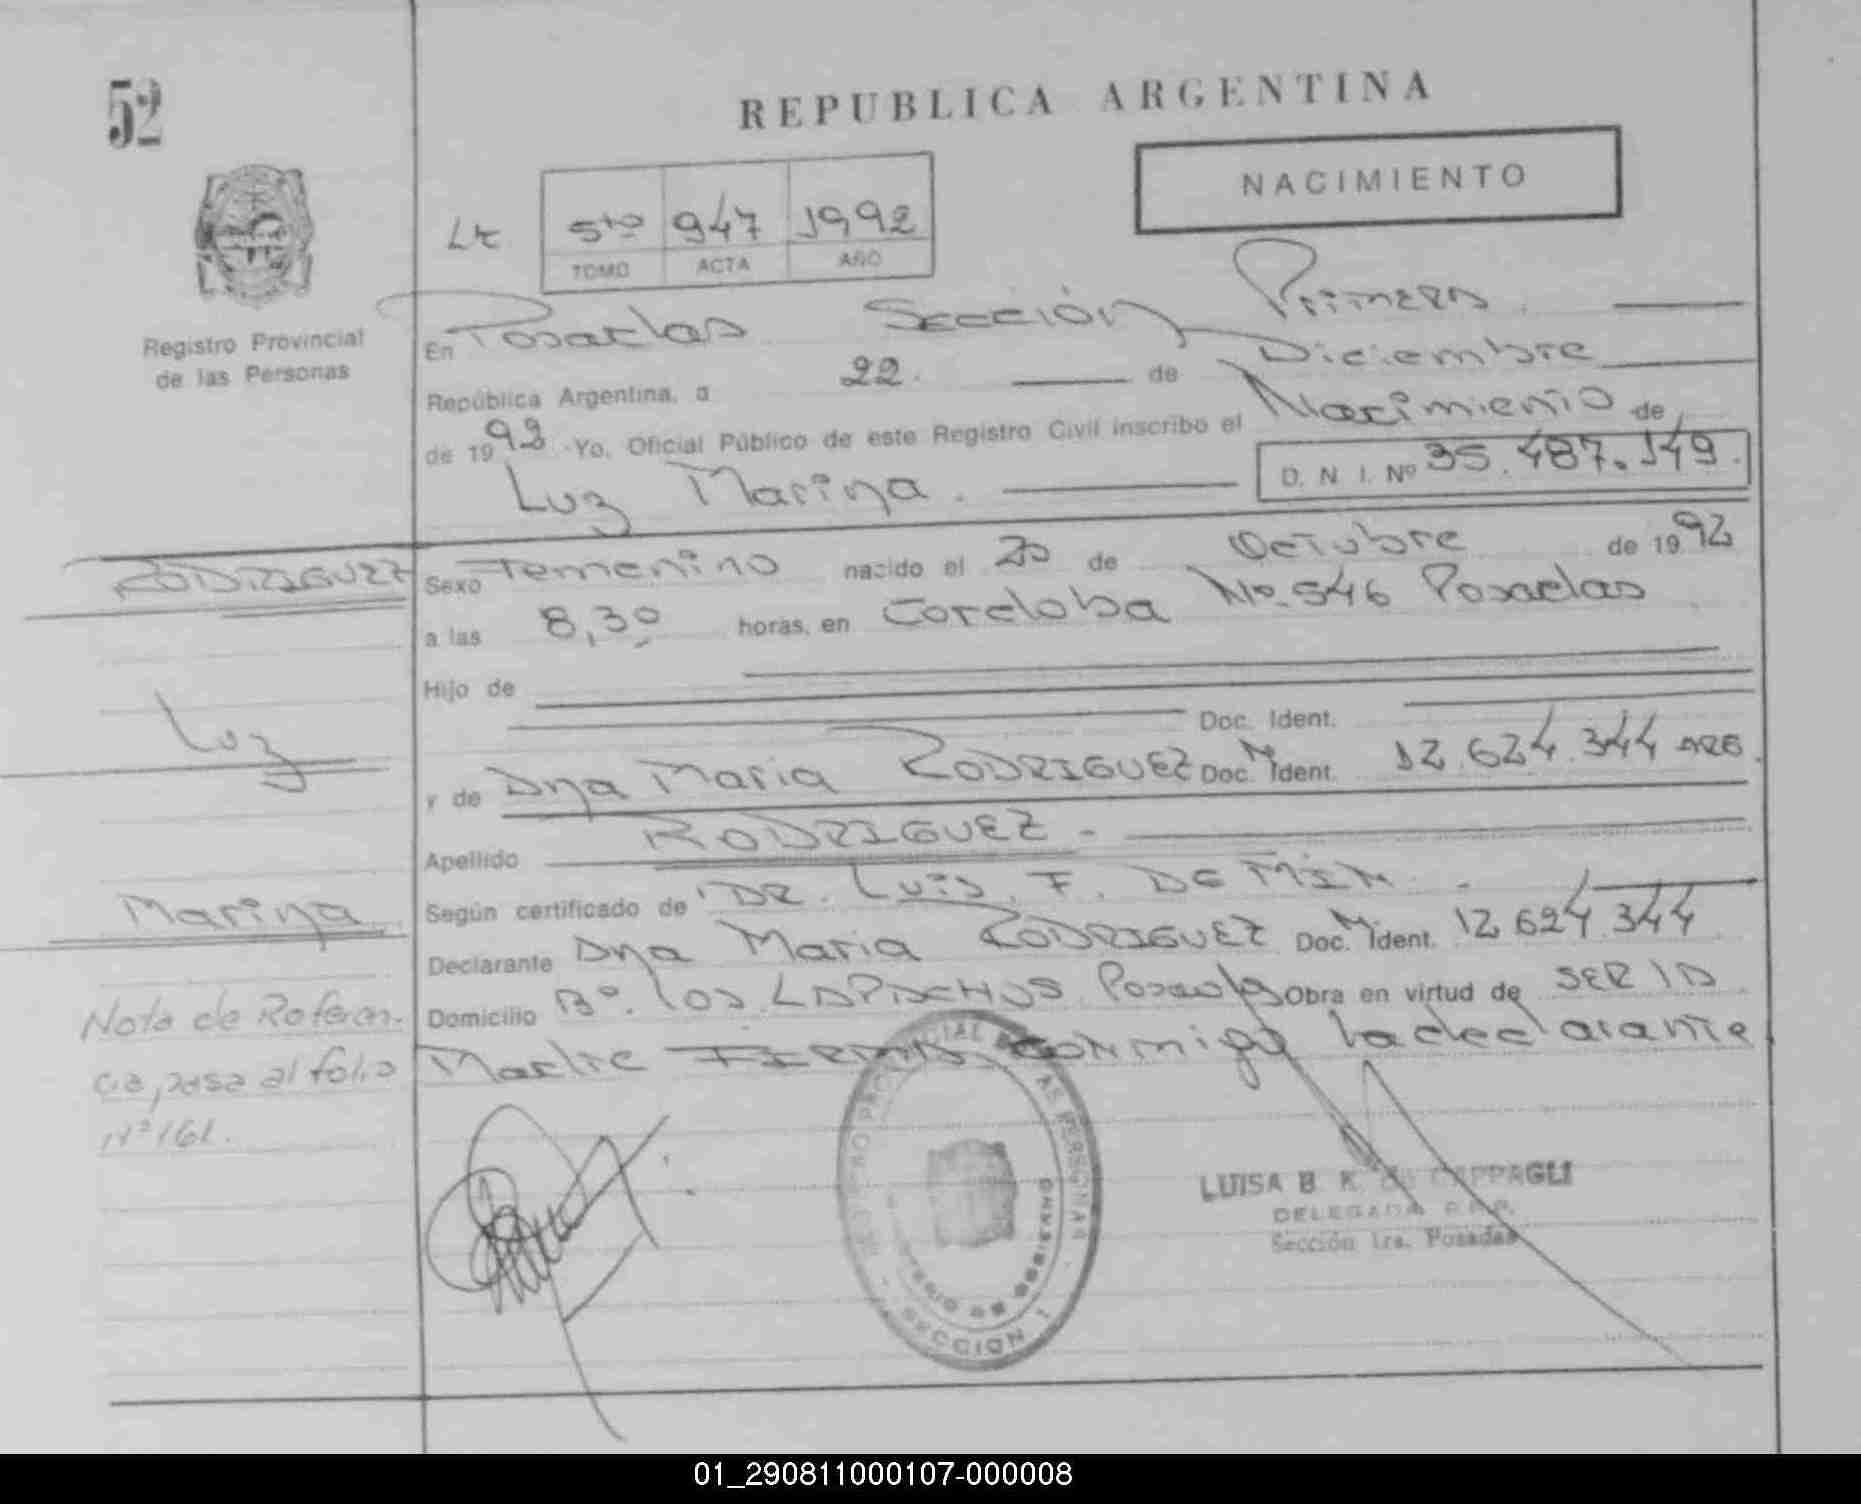 52
REPUBLICA ARGENTINA
NACIMIENTO
5to 947 1992
TOMO ACTA AÑO
Registro Provincial
de las Personas
En Posadas Sección Primera
República Argentina, a 22. de Diciembre
de 1992 Yo, Oficial Público de este Registro Civil inscribo el Nacimiento de
Luz Marina. D. N. I. Nº 35.487.149.
RODRIGUEZ
Sexo Femenino nacido el 20 de Octubre de 1992
a las 8,30 horas, en Cordoba Nº. 546 Posadas
Hijo de
Doc. Ident.
Luz
y de Dña Maria RODRIGUEZ Doc. Ident. 12.624.344 ARG.
Apellido RODRIGUEZ -
Marina
Según certificado de DR. Luis. F. DE MIN
Declarante Dña Maria RODRIGUEZ Doc. Ident. 12 624 344
Domicilio Bº. Los LAPACHOS Posadas Obra en virtud de SER LA
Madre FIRMA conmigo la declarante
Nota de Referen-
cia, pasa al folio
Nº 161.
REGISTRO PROVINCIAL DE LAS PERSONAS
MINISTERIO DE GOBIERNO
SECCION 1
LUISA B. K. DE CAPPAGLI
DELEGADA R.P.P.
Sección 1ra. Posadas
01_290811000107-000008